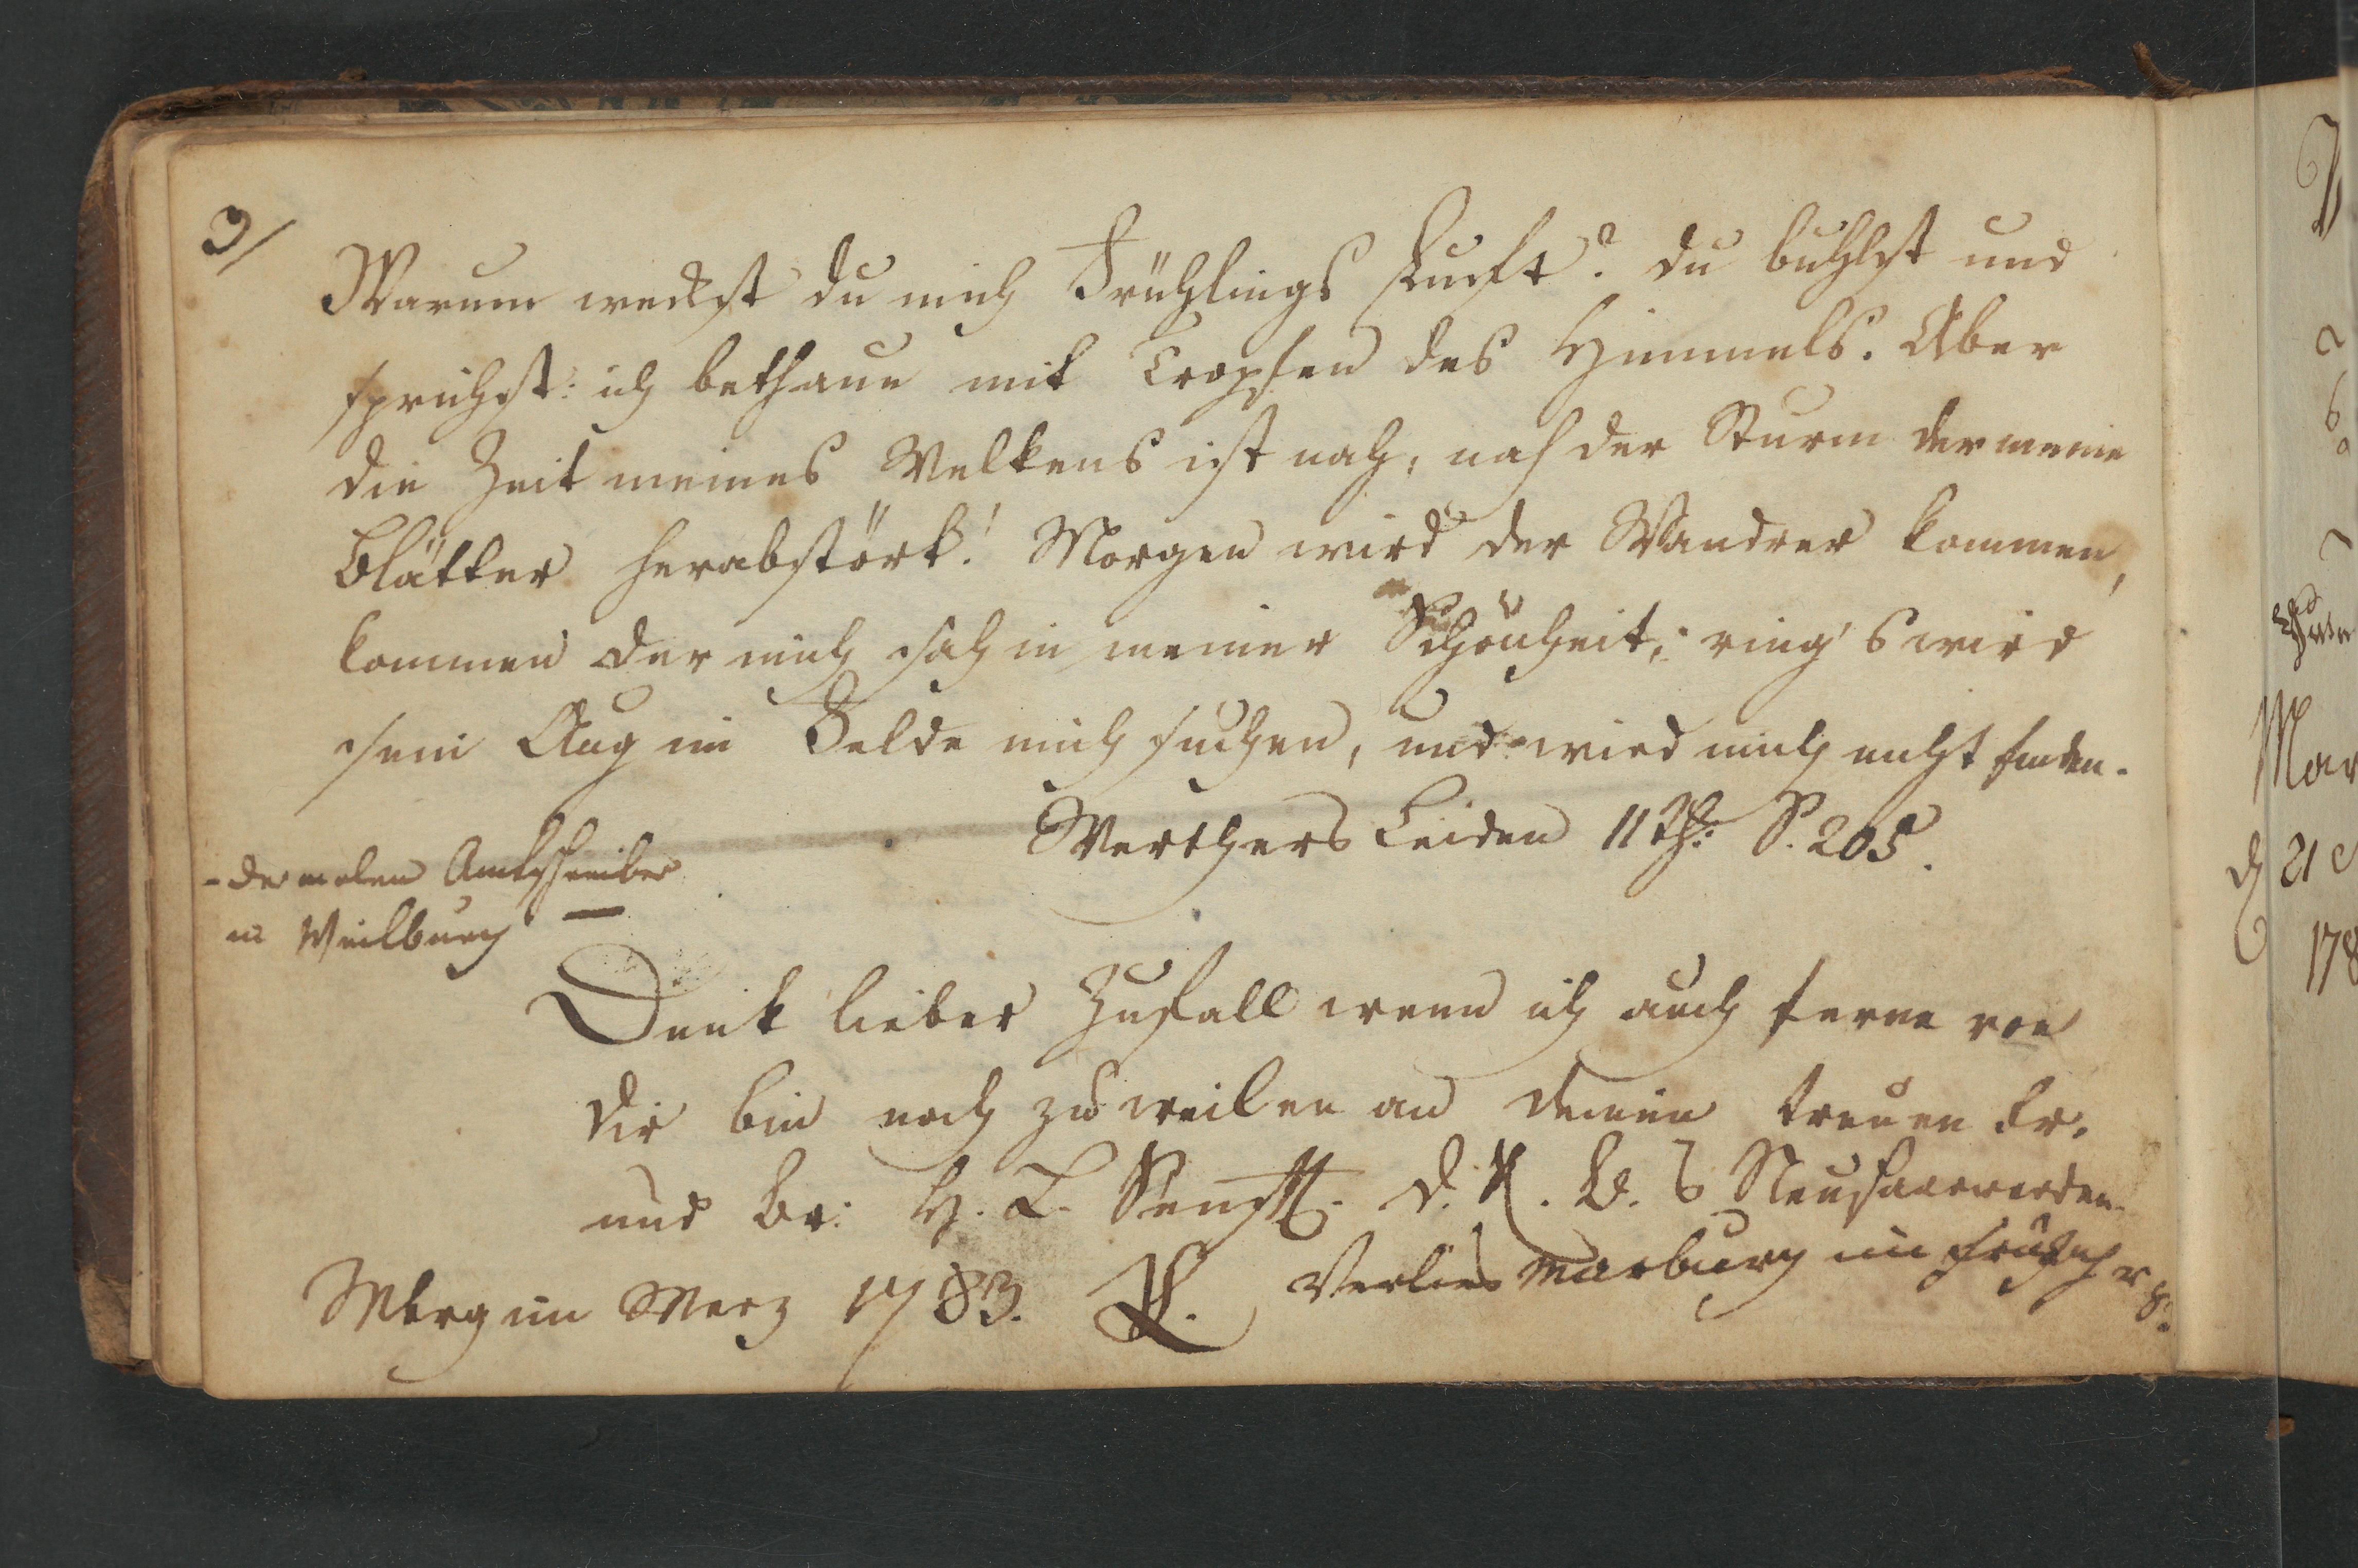 3/
Warum weckst du mich Frühlings Luft? du buhlst und
sprichst: ich bethaue mit Tropfen des Himmels. Aber
die Zeit meines Welkens ist nah, nah der Sturm der meine
Blätter herabstört! Morgen wird der Wandrer kommen,
kommen der mich sah in meiner Schönheit, rings wird
sein Aug im Felde mich suchen, und wird mich nicht finden.
Werthers Leiden II Th: S. 205.
- dermalen Amtsschreiber
in Weilburg -
Denk lieber Zufall wenn ich auch ferne von
dir bin noch zuweilen an deinen treuen Fr.
und Br: H. L. Senfft. d. R. B. Neusaarwerden
Mbrg im Merz 1783. Verlies Marburg im
Mar
21
178